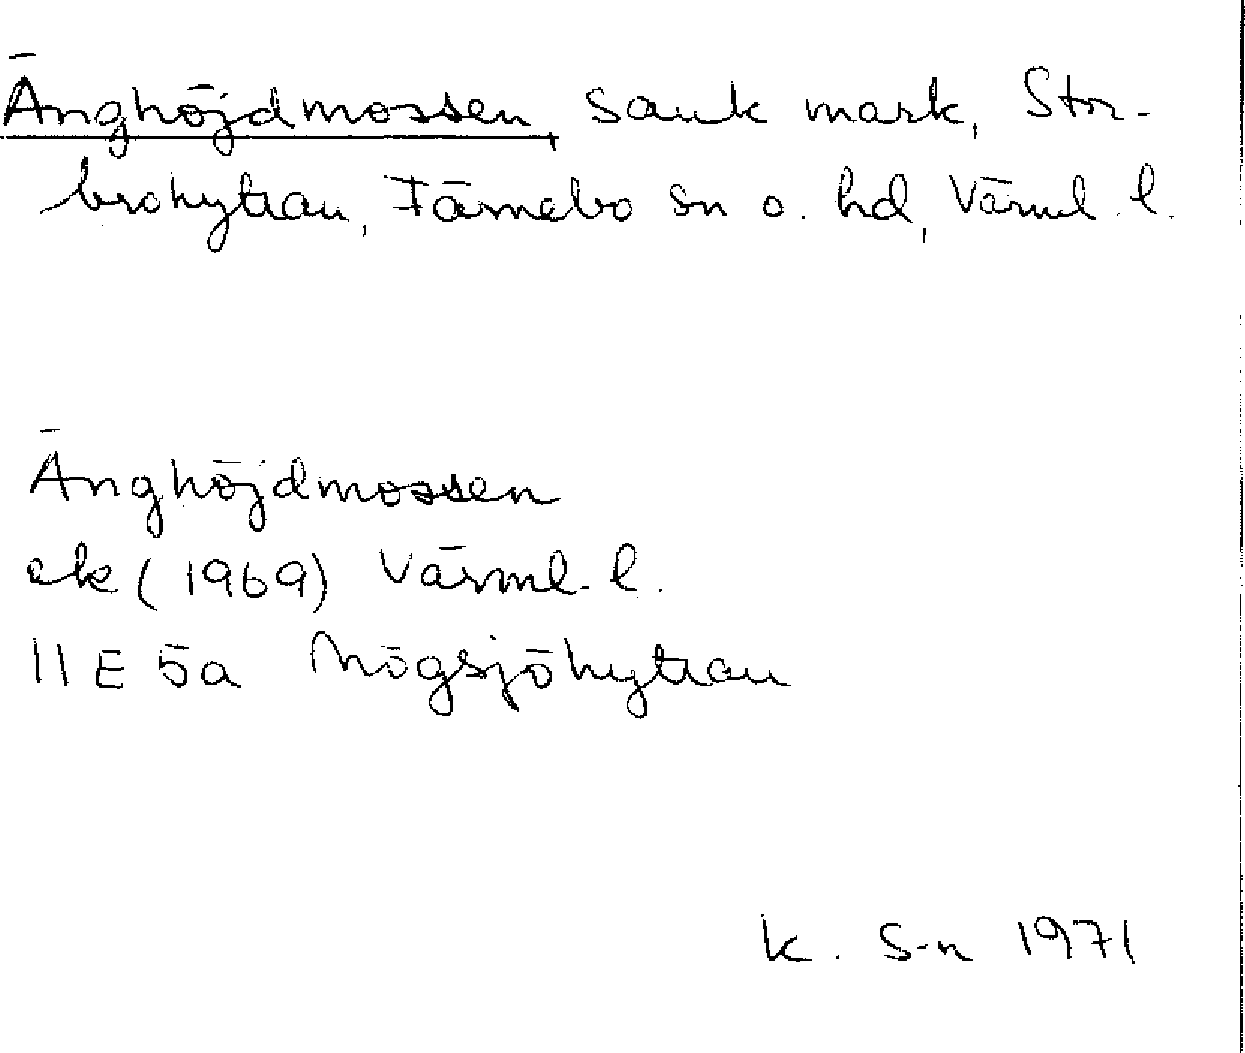 Änghöjdmossen sank mark, Stor-
brohyttan, Färnebo sn o. hd, Värml. l.
Änghöjdmossen
ek (1969) Värml. l.
11 E 5a Högsjöhyttan
K. S-n 1971